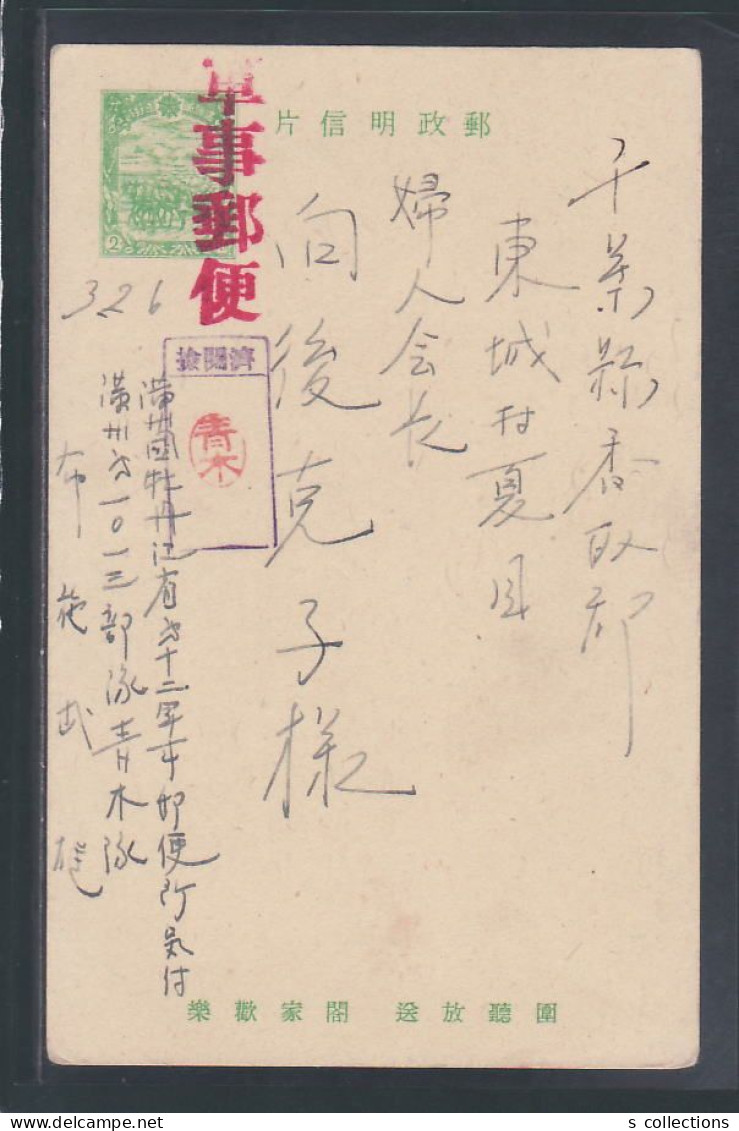 郵政明信片
軍事郵便
2
千葉縣香取郡
東城村夏目
婦人会長
向後克子様
326
検閲濟
青木
満州国牡丹江省第十二軍事郵便所気付
満州第一〇一三部隊青木隊
布施武雄
圍聽放送 閤家歡樂
s collections